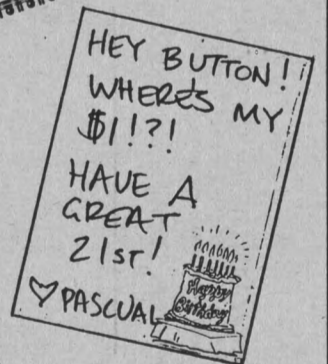 HEY BUTTON!
WHERE'S MY
$1!?!
HAVE A
GREAT
21ST!
♡ PASCUAL
Happy
Birthday